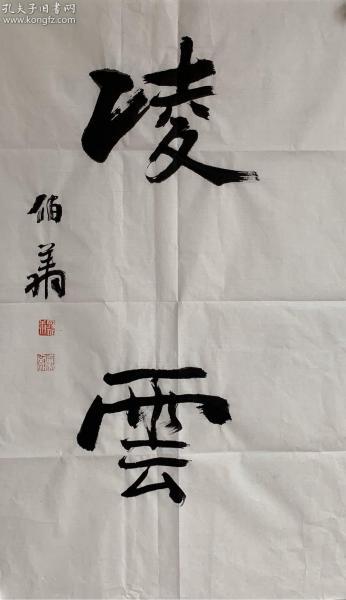 孔夫子旧书网
www.kongfz.com
凌
雲
伯